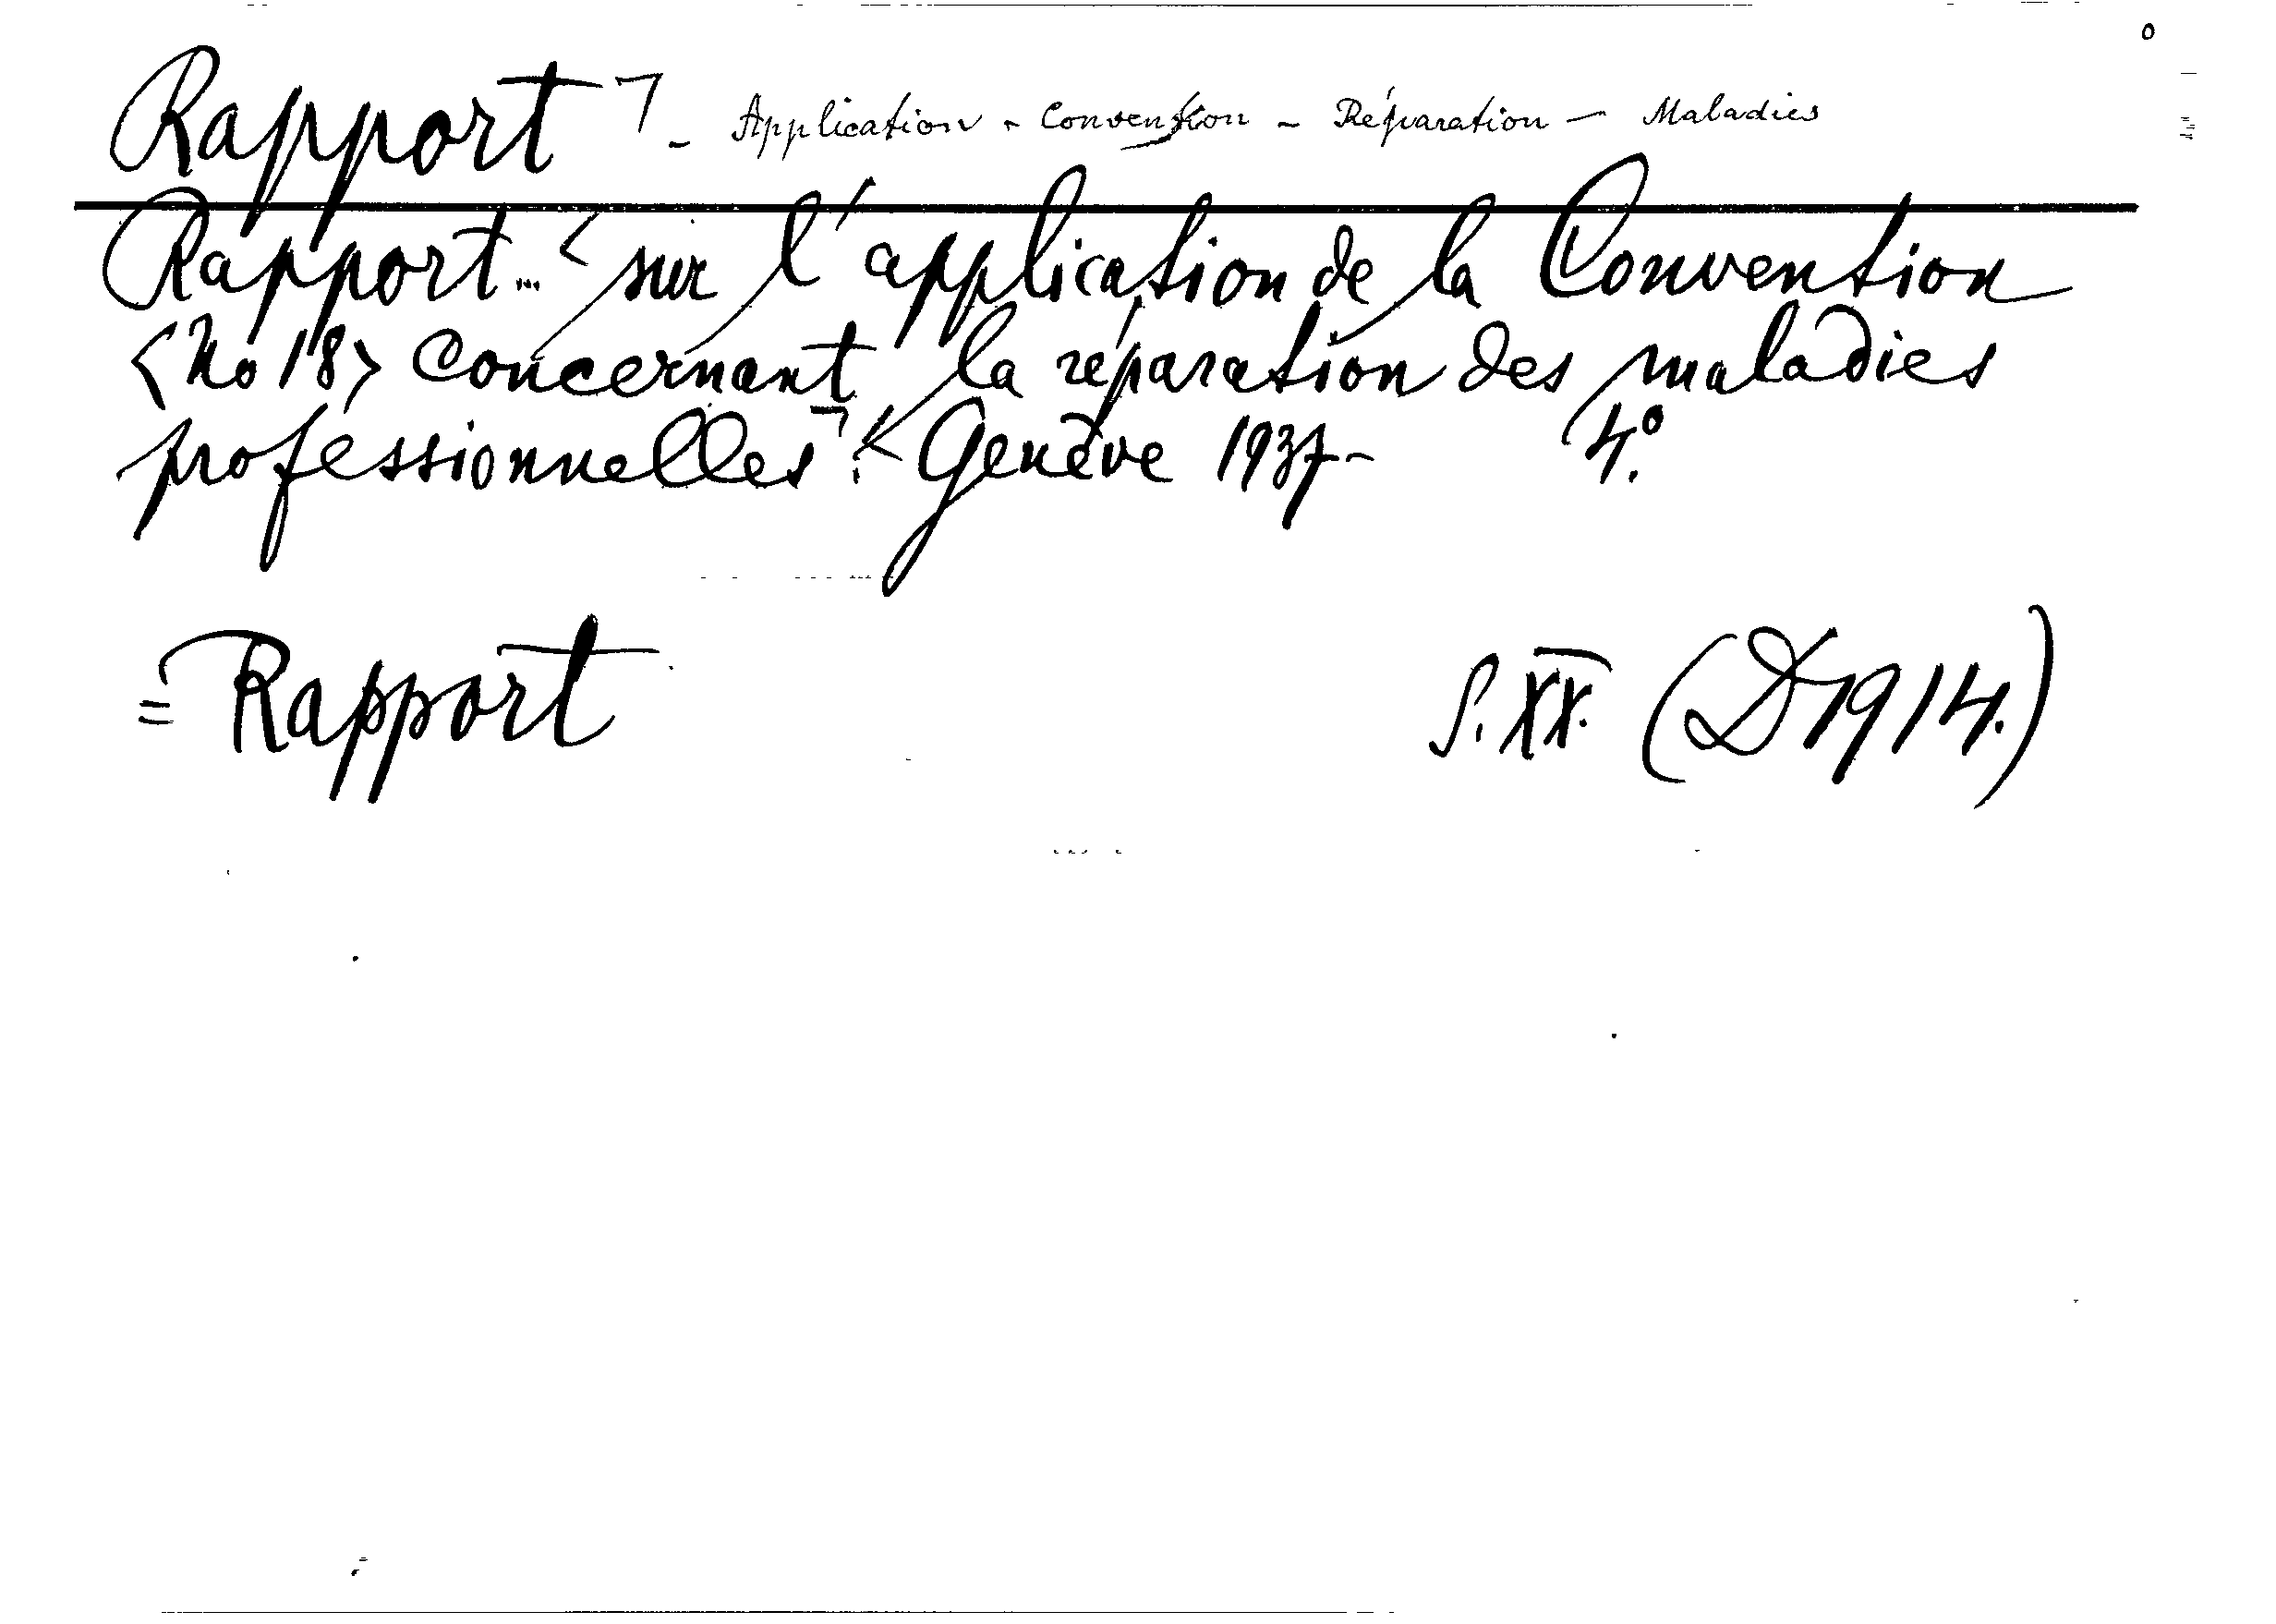 Rapport ¬ - Application - Convention - Réparation - Maladies
Rapport... < sur l'application de la Convention
<No 18> concernant la réparation des maladies
professionnelles ¬. < Genève 1937- 4°.
= Rapport S. XX. (D 1914.)